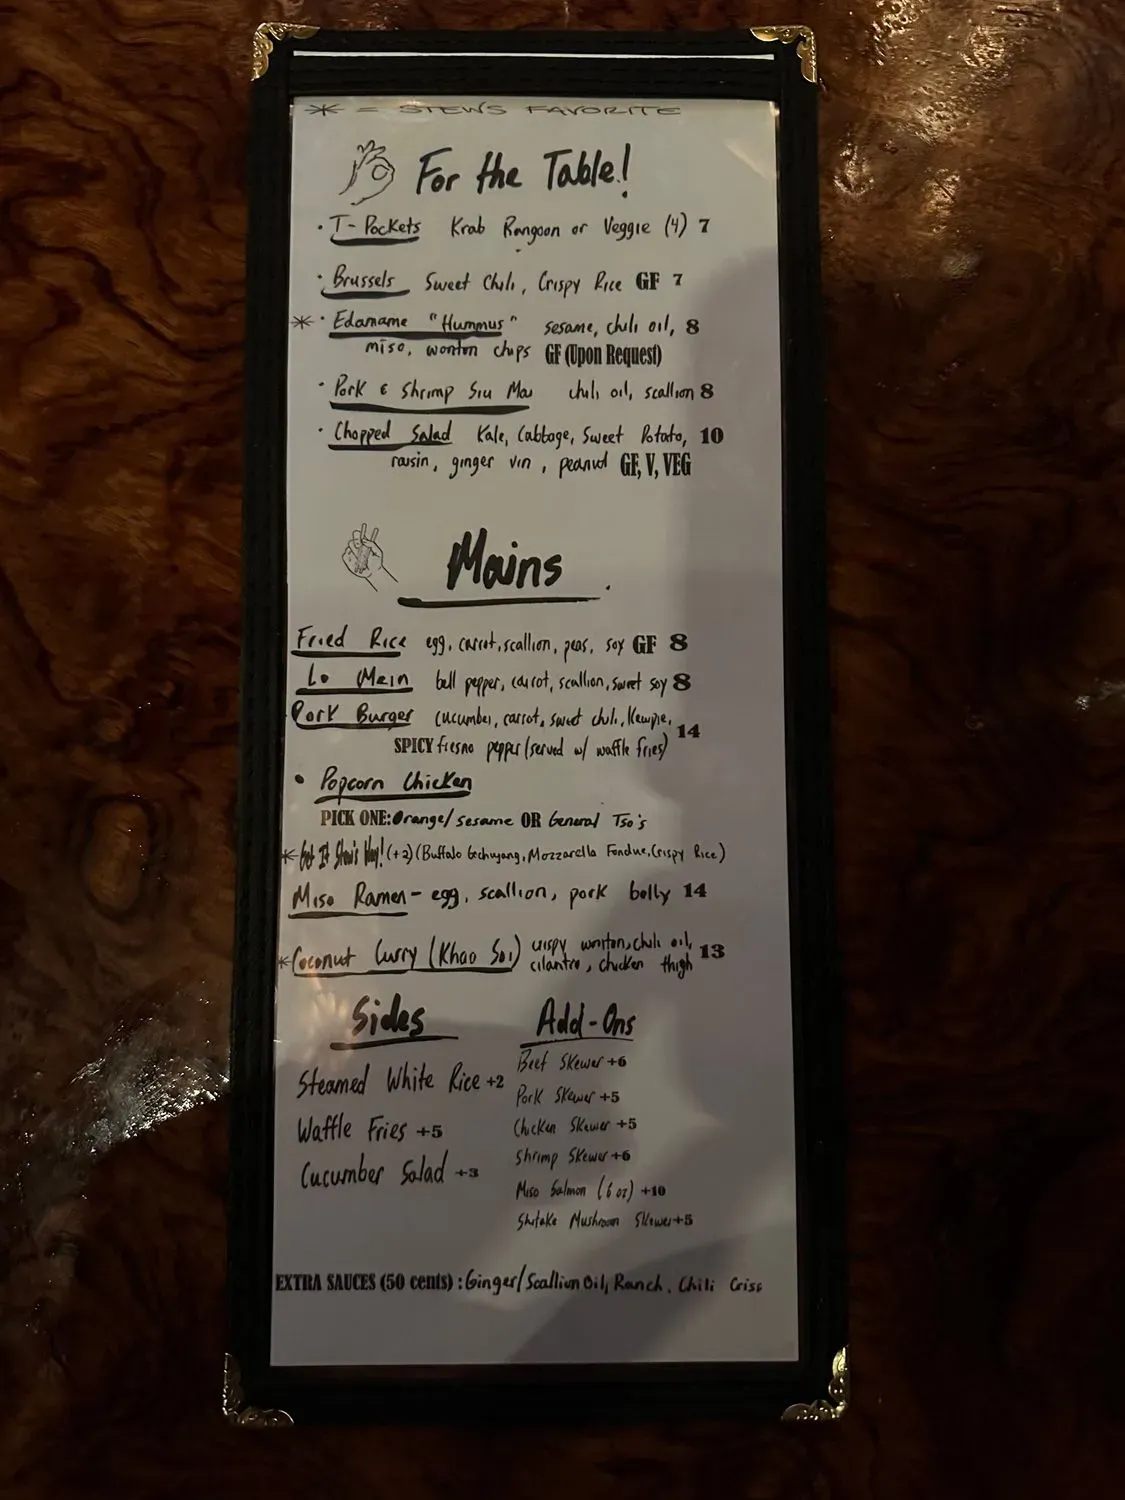 * = STEWS FAVORITE
For the Table!
· T-Pockets Krab Rangoon or Veggie (4) 7
· Brussels Sweet Chili, Crispy Rice GF 7
* · Edamame "Hummus" sesame, chili oil, 8
miso, wonton chips GF (Upon Request)
· Pork & Shrimp Siu Mai chili oil, scallion 8
· Chopped Salad Kale, Cabbage, Sweet Potato, 10
raisin, ginger vin, peanut GF, V, VEG
Mains
Fried Rice egg, carrot, scallion, peas, soy GF 8
Lo Mein bell pepper, carrot, scallion, sweet soy 8
Pork Burger cucumber, carrot, sweet chili, Kewpie, 14
SPICY fresno pepper (served w/ waffle fries)
• Popcorn Chicken
PICK ONE: Orange/Sesame OR General Tso's
* Get It Stew's Way! (+2) (Buffalo Gochujang, Mozzarella Fondue, Crispy Rice)
Miso Ramen - egg, scallion, pork belly 14
* Coconut Curry (Khao Soi) crispy wonton, chili oil, 13
cilantro, chicken thigh
Sides
Steamed White Rice +2
Waffle Fries +5
Cucumber Salad +3
Add-Ons
Beef Skewer +6
Pork Skewer +5
Chicken Skewer +5
Shrimp Skewer +6
Miso Salmon (6 oz) +10
Shitake Mushroom Skewer +5
EXTRA SAUCES (50 cents) : Ginger/Scallion Oil, Ranch, Chili Crisp